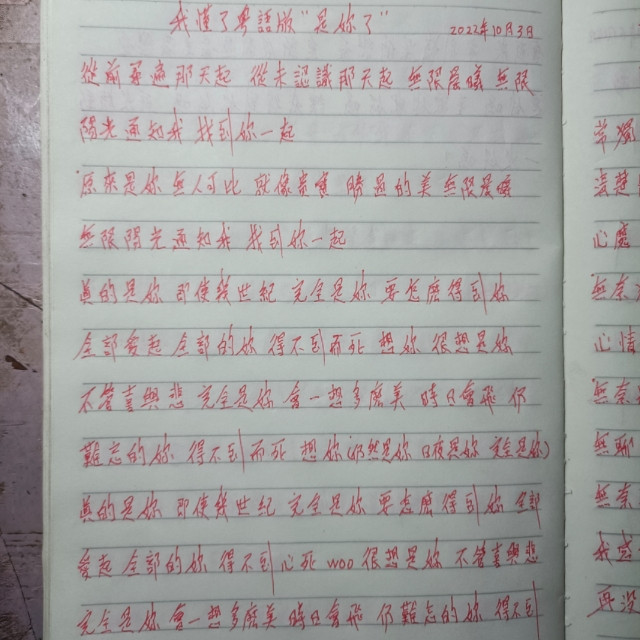 我懂了粵語版"是你了"
2022年10月3日
從前不過那天起 從未認識那天起 無限晨曦 無限
陽光通知我 找到你一起
原來是你 無人可比 就像密實 勝過的美 無限晨曦
無限陽光通知我 找到你一起
真的是你 即使幾世紀 完全是你 要怎麼得到你
全部愛起 全部的你 得不到而死 想你 很想是你
不管喜與悲 完全是你 會一想多麼美 時日會飛 仍
難忘的你 得不到而死 想你(仍然是你 日夜是你 完全是你)
真的是你 即使幾世紀 完全是你 要怎麼得到你 全部
愛起 全部的你 得不到心死 woo 很想是你 不管喜與悲
完全是你 會一想多麼美 時日會飛 仍難忘的你 得不到
心
無奈
心情
無奈
無聊
無奈
我
再沒